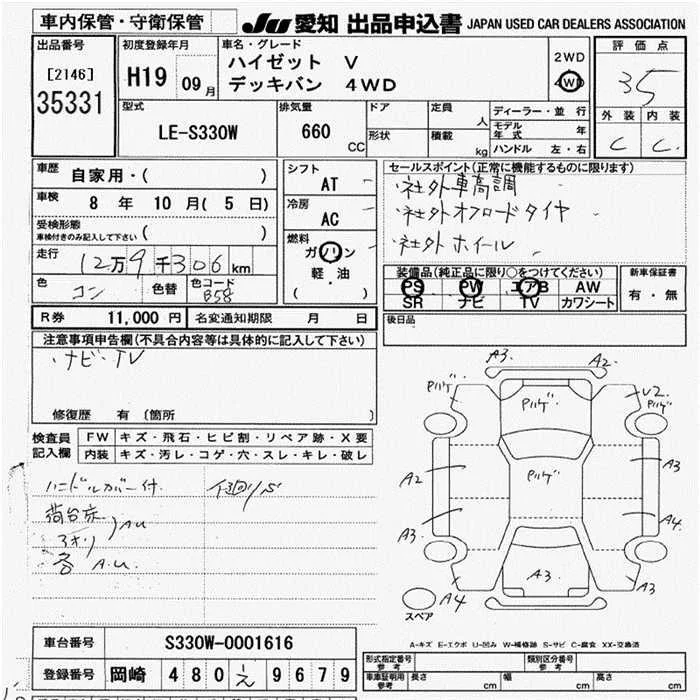 車内保管・守衛保管
JU 愛知 出品申込書 JAPAN USED CAR DEALERS ASSOCIATION
出品番号
[2146]
35331
初度登録年月
H19 09月
車名・グレード
ハイゼット V
デッキバン 4WD
2WD
4WD
評価点
35
外装 内装
C C
型式
LE-S330W
排気量
660 CC
ドア
形状
定員 人
積載 kg
ディーラー・並行
モデル年式 年
ハンドル 左・右
車歴 自家用・( )
車検 8年 10月( 5日)
受検形態
車検付きのみ記入して下さい ( )
走行 12万9千306km
色 コン 色替 色コード B58
シフト
AT
冷房
AC
燃料
ガソリン
軽・油
( )
セールスポイント(正常に機能するものに限ります)
・社外車高調
・社外オフロードタイヤ
・社外ホイール
装備品(純正品に限り○をつけてください)
PS PW エアB AW
SR ナビ TV カワシート
新車保証書
有・無
R券 11,000円 名変通知期限 月 日
後日品
注意事項申告欄(不具合内容等は具体的に記入して下さい)
・ナビ・TV
修復歴 有 〔箇所 〕
検査員記入欄
FW キズ・飛石・ヒビ割・リペア跡・X要
内装 キズ・汚レ・コゲ・穴・スレ・キレ・破レ
ハンドルカバー付.
荷台床
アオリ
A.U
各 A.U.
A3.
A2.
Pハゲ
Pハゲ
U2.
Pハゲ
A2
Pハゲ
A3
A3.
A4.
A3.
A4
A3
スペア
A-キズ E-エクボ U-凹み W-補修跡 S-サビ C-腐食 XX-交換済
車台番号 S330W-0001616
登録番号 岡崎 480 え 9679
形式指定番号 参考
類別区分番号 参考
車庫証明用 参考 長さ cm 幅 cm 高さ cm